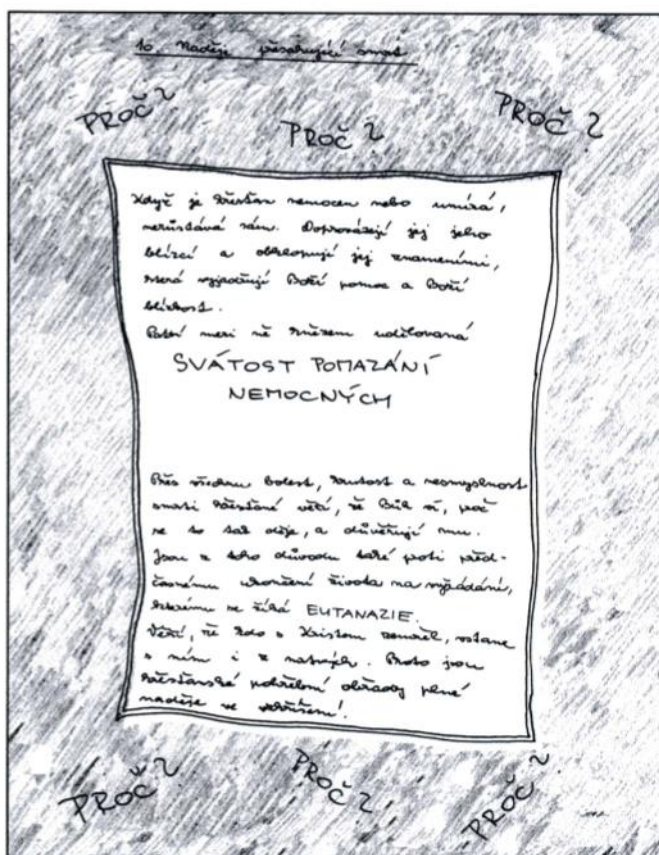 10. Naděje přesahující smrt
PROČ? PROČ? PROČ?
Když je křesťan nemocen nebo umírá,
nezůstává sám. Doprovázejí jej jeho
blízcí a obklopují jej znameními,
která vyjadřují Boží pomoc a Boží
blízkost.
Patří mezi ně knězem udělovaná
SVÁTOST POMAZÁNÍ
NEMOCNÝCH
Přes všechnu bolest, krutost a nesmyslnost
smrti křesťané věří, že Bůh ví, proč
se to tak děje, a důvěřují mu.
Jsou z toho důvodu také proti před-
časnému ukončení života na vyžádání,
kterému se říká EUTANAZIE.
Věří, že kdo s Kristem zemřel, vstane
s ním i z mrtvých. Proto jsou
křesťanské pohřební obřady plné
naděje ve vzkříšení!
PROČ? PROČ? PROČ?